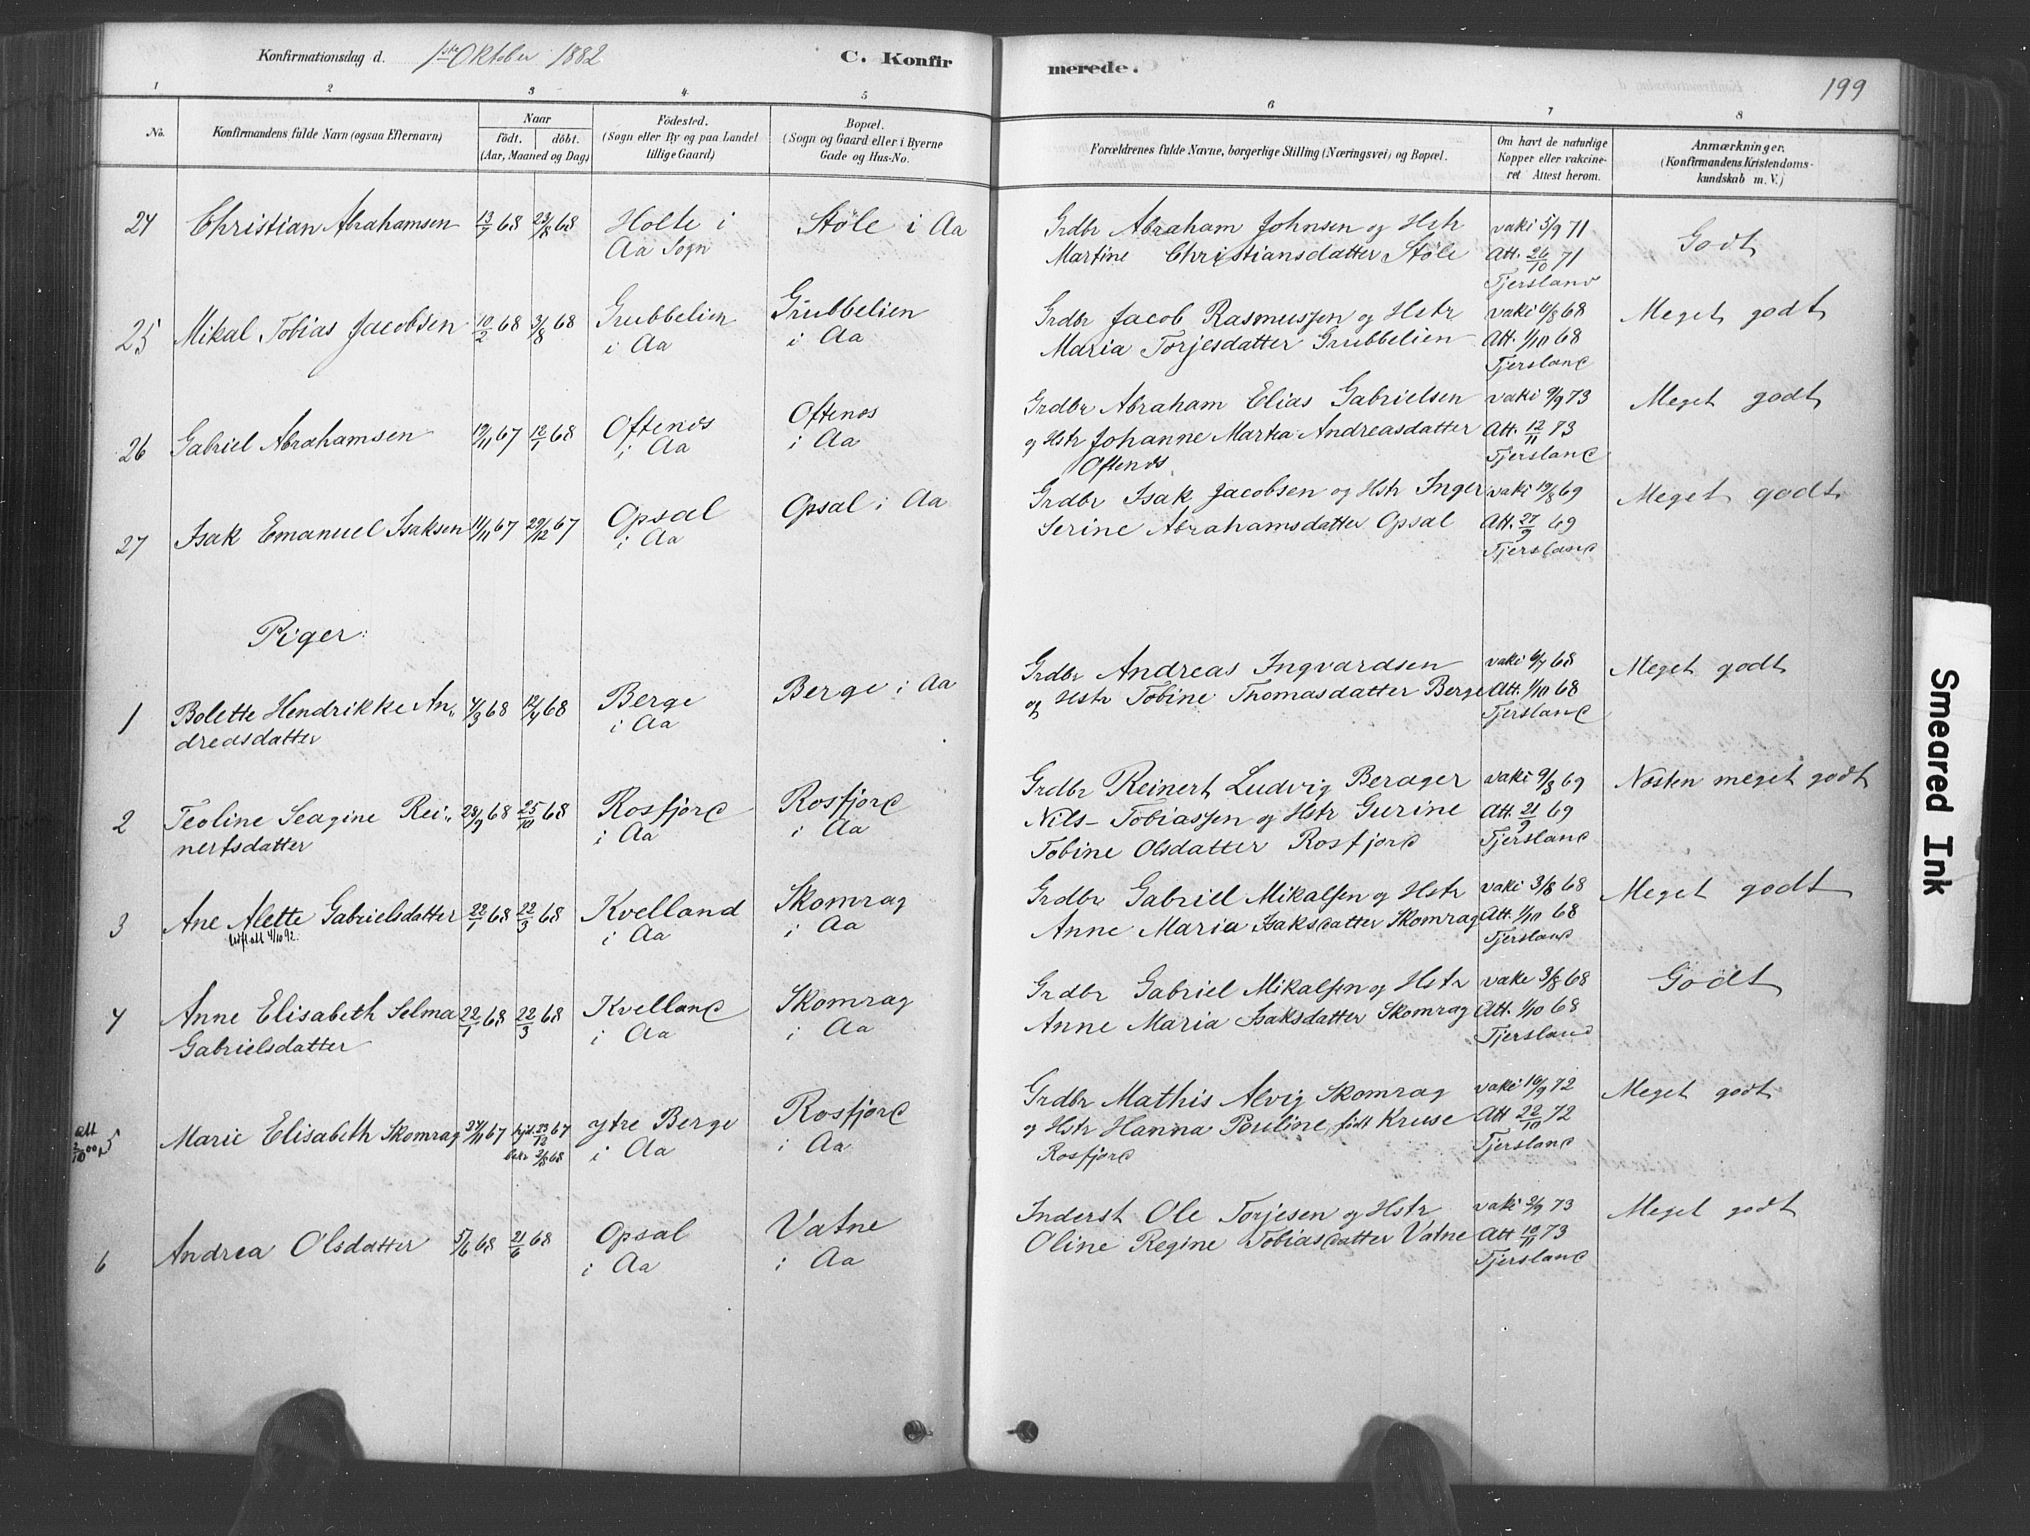 Konfirmationsdag d. 1ste Oktober 1882
C. Konfir
merede.
199
1 2 3 4 5 6 7 8
No.
Konfirmandens fulde Navn (ogsaa Efternavn)
Naar
födt. döbt.
(Aar, Maaned og Dag)
Födested.
(Sogn eller By og paa Landet
tillige Gaard)
Bopæl.
(Sogn og Gaard eller i Byerne
Gade og Hus-No.
Forældrenes fulde Navne, borgerlige Stilling (Næringsvei) og Bopæl.
Om havt de naturlige
Kopper eller vakcine-
ret Attest herom.
Anmærkninger.
(Konfirmandens Kristendoms-
kundskab m. V.)
24 Christian Abrahamsen 13/7 68 23/8 68 Holte i Støle i Aa
Aa Sogn
Grdbr Abraham Johnsen og Hstr vaki 5/9 71 Godt
Martine Christiansdatter Støle Att. 26/10 71
Fjersland
25 Mikal Tobias Jacobsen 10/2 68 3/8 68 Grubbelien Grubbelien
i Aa i Aa
Grdbr Jacob Rasmussen og Hstr vaki 6/8 68 Meget godt
Maria Torjesdatter Grubbelien Att. 1/10 68
Fjersland
26 Gabriel Abrahamsen 12/11 67 12/1 68 Oftenes Oftenes
i Aa i Aa
Grdbr Abraham Elias Gabrielsen vaki 9/9 73 Meget godt
og Hstr Johanne Martea Andreasdatter Att. 12/11 73
Oftenes Fjersland
27 Isak Emanuel Isaksen 11/11 67 29/12 67 Opsal Opsal i Aa
i Aa
Grdbr Isak Jacobsen og Hstr Inger vaki 19/8 69 Meget godt
Serine Abrahamsdatter Opsal Att. 27/9 69
Fjersland
Piger:
1 Bolette Hendrikke An„ 4/3 68 12/4 68 Berge Berge i Aa
dreasdatter i Aa
Grdbr Andreas Ingvardsen vaki 6/7 68 Meget godt
og Hstr Tobine Thomasdatter Berge Att. 1/10 68
Fjersland
2 Teoline Seagine Rei„ 28/9 68 25/10 68 Rosfjord Rosfjord
nertsdatter i Aa i Aa
Grdbr Reinert Ludvig Berager vaki 9/8 69 Næsten meget godt
Nils- Tobiassen og Hstr Gurine Att. 21/9 69
Tobine Olsdatter Rosfjord Fjersland
3 Ane Alette Gabrielsdatter 22/1 68 22/3 68 Kvelland Skomrag
4/10 92. i Aa i Aa
Grdbr Gabriel Mikalsen og Hstr vaki 3/8 68 Meget godt
Anne Maria Isaksdatter Skomrag Att. 1/10 68
Fjersland
4 Anne Elisabeth Selma 22/1 68 22/3 68 Kvelland Skomrag
Gabrielsdatter i Aa i Aa
Grdbr Gabriel Mikalsen og Hstr vake 3/8 68 Godt
Anne Maria Isaksdatter Skomrag Att. 1/10 68
Fjersland
att
2/10 00 5 Marie Elisabeth Skomrag 24/11 67 hjd. 29/12 67 ytre Berge Rosfjord
bekr 2/8 68 i Aa i Aa
Grdbr Mathis Alvig Skomrag vaki 16/9 72 Meget godt
og Hstr Hanna Pouline, født Kruse Att 22/10 72
Rosfjord Fjersland
6 Andrea Olsdatter 5/6 68 21/6 68 Opsal Vatne
i Aa i Aa
Inderst Ole Torjesen og Hstr vaki 2/9 73 Meget godt
Oline Regine Tobiasdatter Vatne Att 10/11 73
Fjersland
Smeared Ink